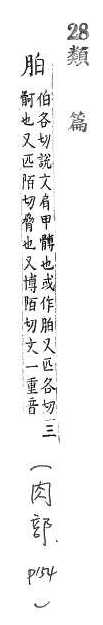 28類 篇
胉 伯各切說文肩甲髆也或作胉又匹各切
䏙也又匹陌切脅也又博陌切文一重音
三
(肉部. p154)